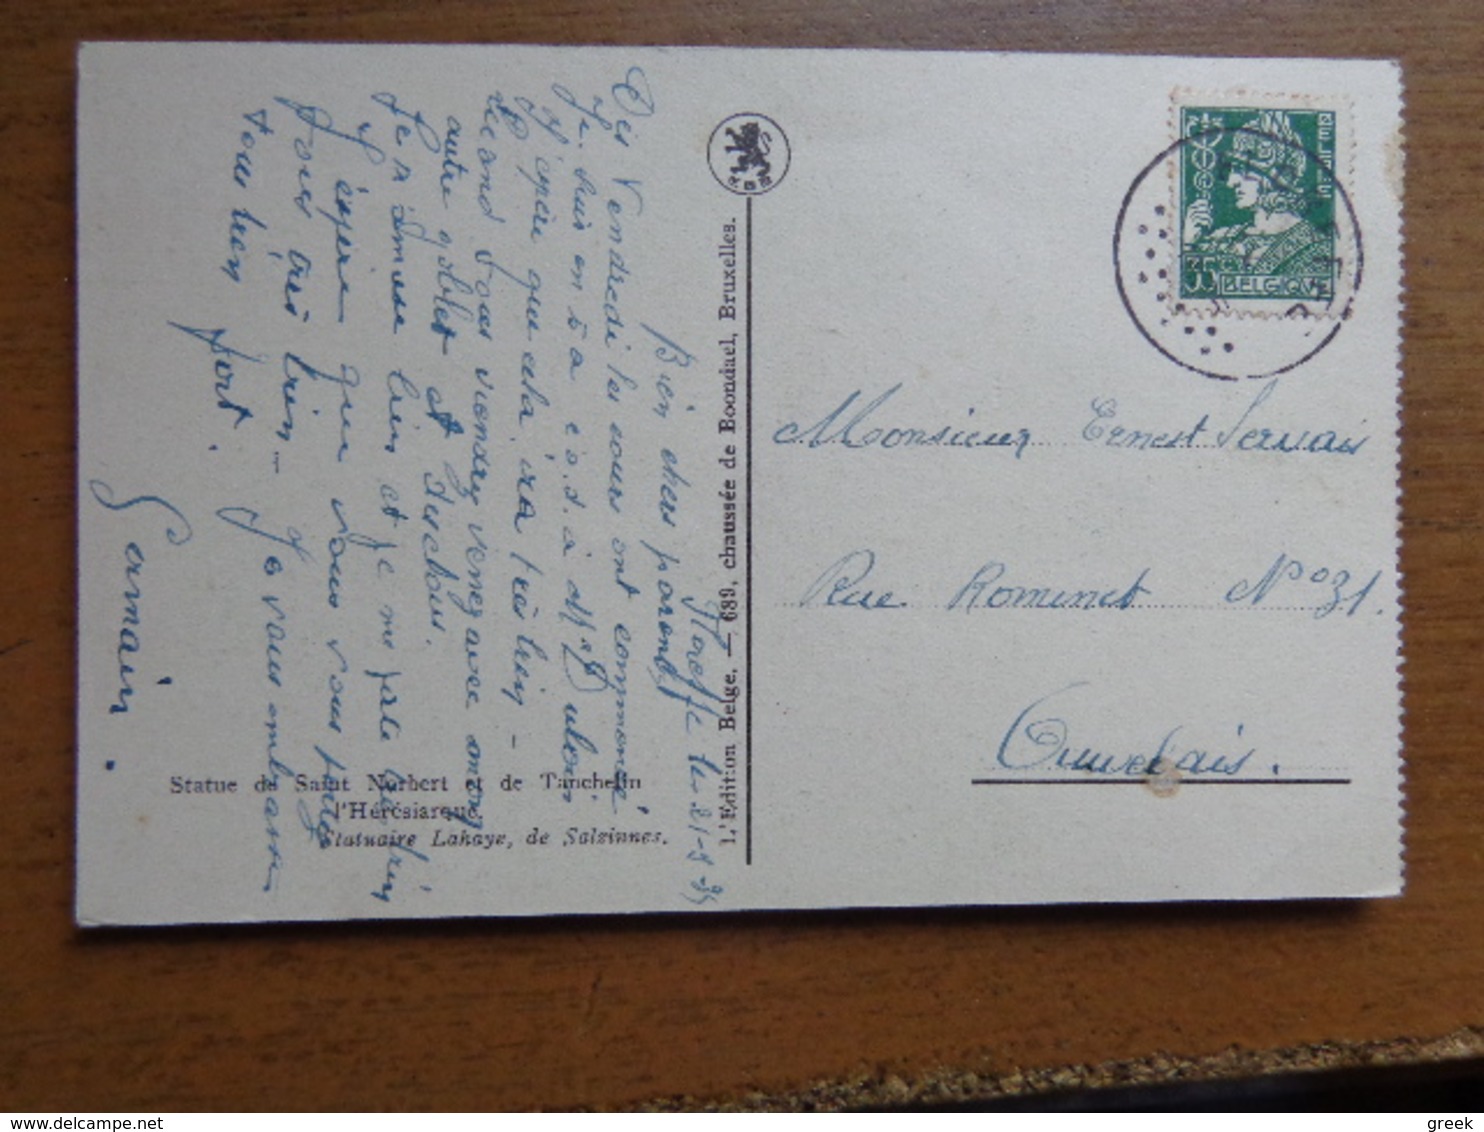 Floreffe le 21-9-35
Bien chers parents
Dès Vendredi les cours ont commencé
Je suis en à
J'espère que cela ira très bien -
second vous viendrez venez avec mon
autre gilet et
Je m'amuse bien et je me porte très bien
J'espère que vous vous portez
tous très bien - Je vous embrasse
tous bien fort.
Germain.
Statue de Saint Norbert et de Tanchelin
l'Hérésiarque.
Statuaire Lahaye, de Salzinnes.
L'Edition Belge. — 689, chaussée de Boondael, Bruxelles.
BELGIQUE
35
FLOREFFE
Monsieur Ernest Servais
Rue Rominet N° 31.
Auvelais.
greek